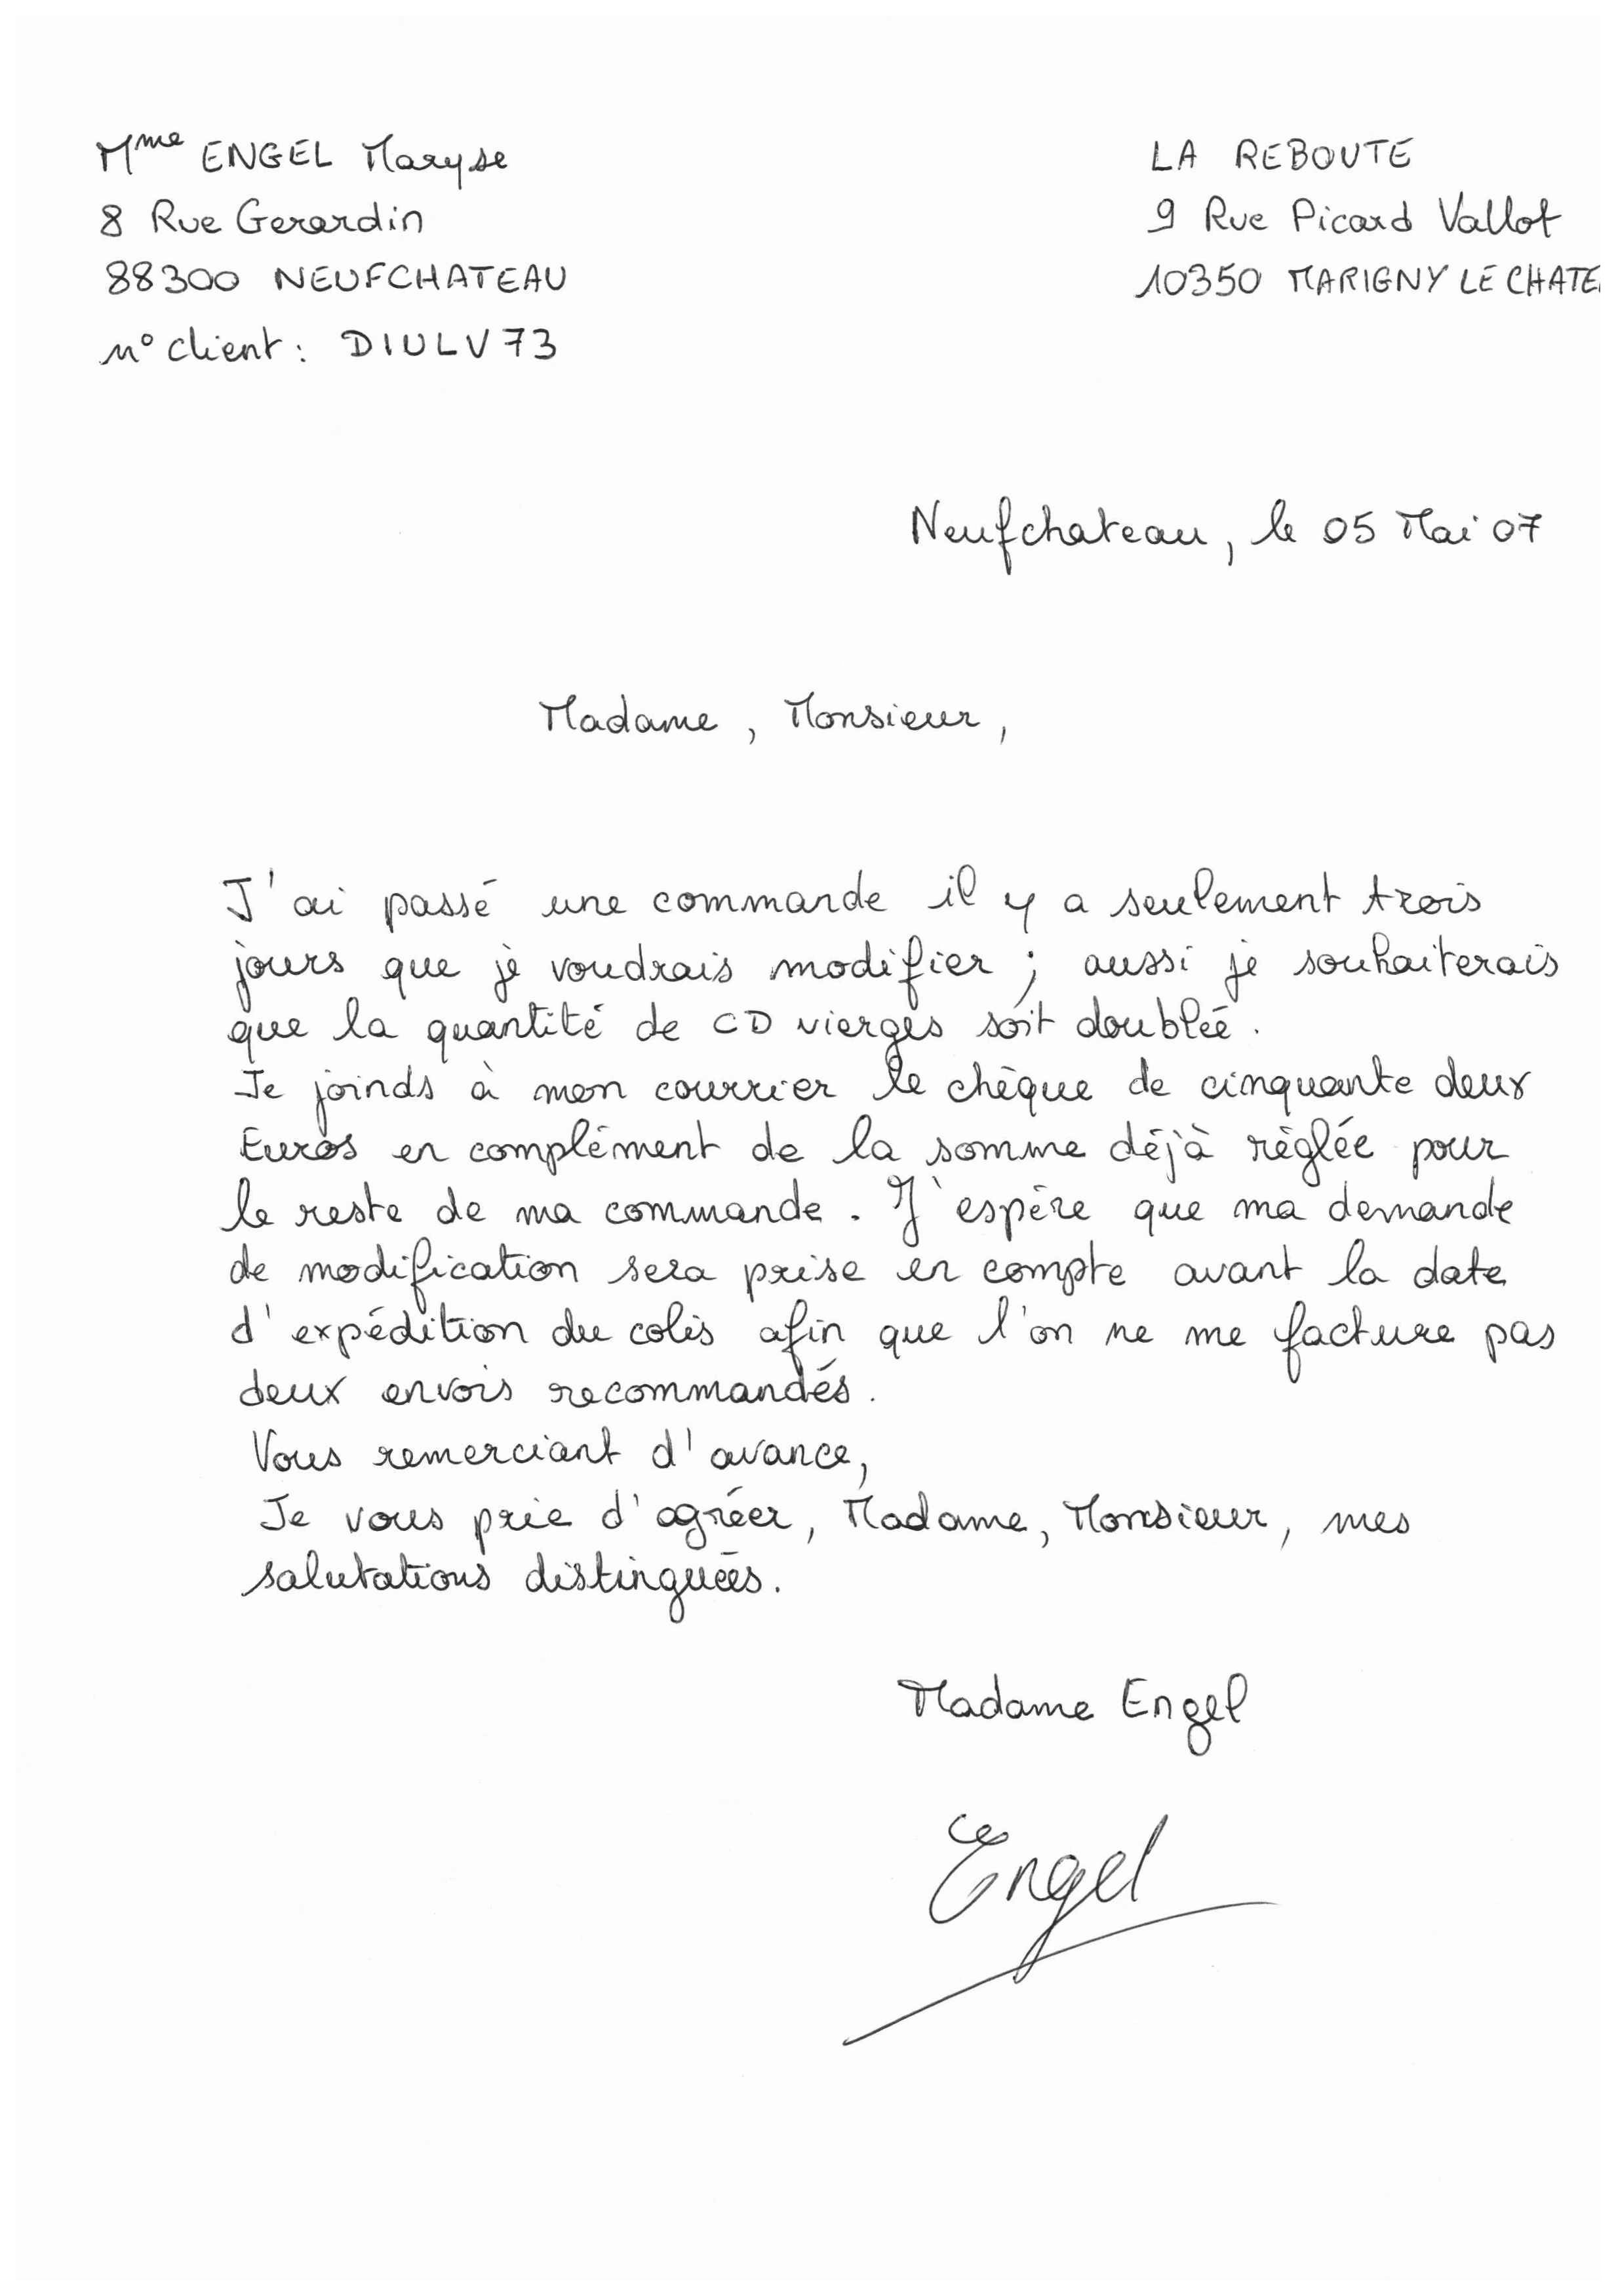 Mme ENGEL Maryse
8 Rue Gerardin
88300 NEUFCHATEAU
n° client : DIULV73
LA REBOUTE
9 Rue Picard Vallot
10350 MARIGNY LE CHATE
Neufchateau, le 05 Mai 07
Madame, Monsieur,
J'ai passé une commande il y a seulement trois
jours que je voudrais modifier ; aussi je souhaiterais
que la quantité de CD vierges soit doublée.
Je joinds à mon courrier le chèque de cinquante deux
Euros en complément de la somme déjà réglée pour
le reste de ma commande. J'espère que ma demande
de modification sera prise en compte avant la date
d'expédition du colis afin que l'on ne me facture pas
deux envois recommandés.
Vous remerciant d'avance,
Je vous prie d'agréer, Madame, Monsieur, mes
salutations distinguées.
Madame Engel
Engel